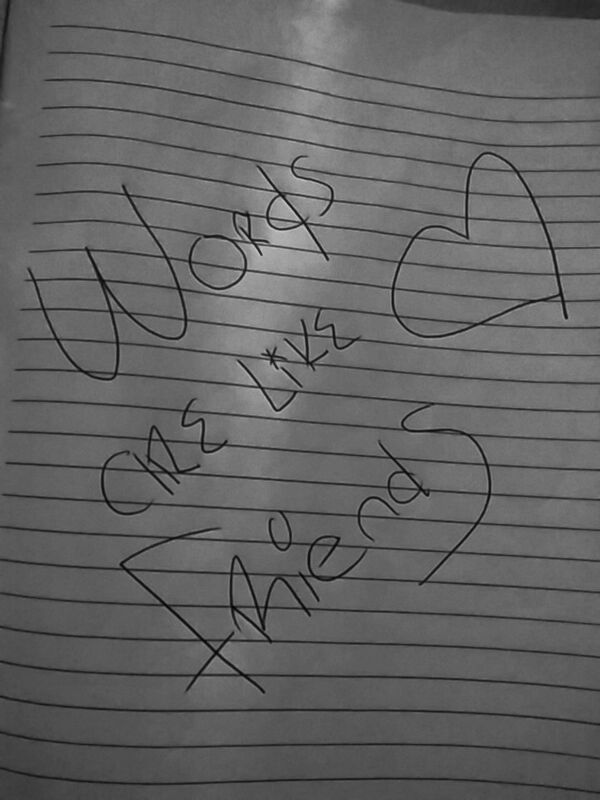 Words
are like
Friends